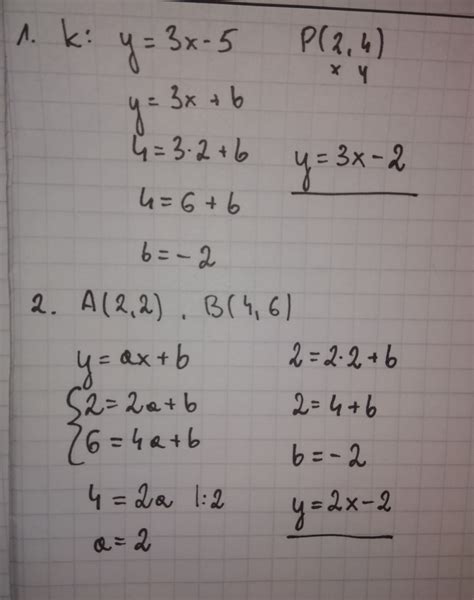 1. k: y = 3x - 5 P(2,4)
x y
y = 3x + b
4 = 3·2 + b y = 3x - 2
4 = 6 + b
b = - 2
2. A(2,2) , B(4,6)
y = ax + b 2 = 2·2 + b
{2 = 2a + b 2 = 4 + b
6 = 4a + b b = - 2
4 = 2a |:2 y = 2x - 2
a = 2